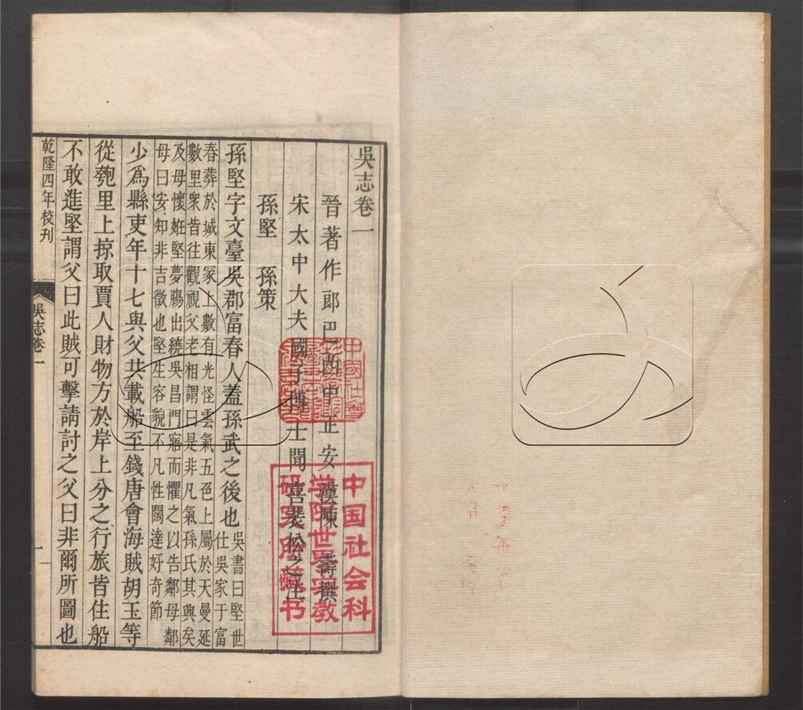 吳志卷一
晉著作郎巴西中正安漢陳壽撰
宋太中大夫國子博士聞喜裴松之注
孫堅 孫策
孫堅字文臺吳郡富春人蓋孫武之後也吳書曰堅世仕吳家于富
春葬於城東冢上數有光怪雲氣五色上屬於天曼延
數里衆皆往觀視父老相謂曰是非凡氣孫氏其興矣
及母懷姙堅夢腸出繞吳昌門寤而懼之以告鄰母鄰
母曰安知非吉徵也堅生容貌不凡性闊達好奇節
少爲縣吏年十七與父共載船至錢唐會海賊胡玉等
從匏里上掠取賈人財物方於岸上分之行旅皆住船
不敢進堅謂父曰此賊可擊請討之父曰非爾所圖也
乾隆四年校刊
吳志卷一
一
中国社会科
学院世界宗教
研究所藏书